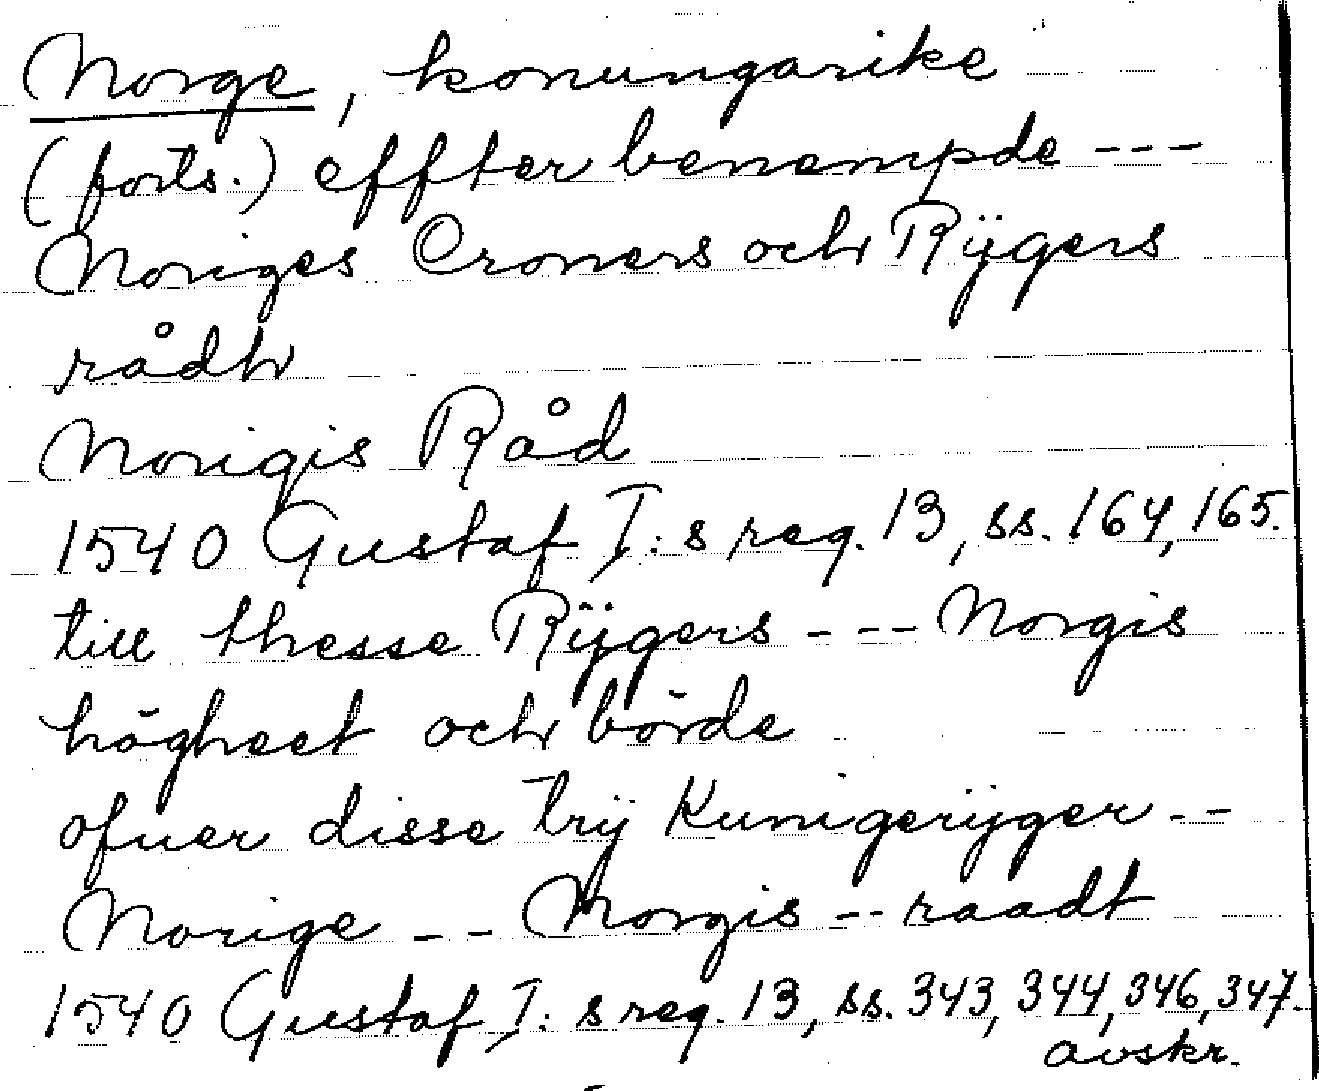 Norge, konungarike
(forts.) effter benempde ---
Noriges Croners och Rÿgers
rådh
Norigis Råd
1540 Gustaf I:s reg. 13, ss. 164, 165.
till thesse Rÿgers --- Norgis
högheet och börde
ofuer disse trÿ Kunigerÿger --
Norige -- Norgis -- raadt
1540 Gustaf I:s reg. 13, ss. 343, 344, 346, 347.
avskr.